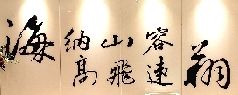 海纳山容
高飛遠翔